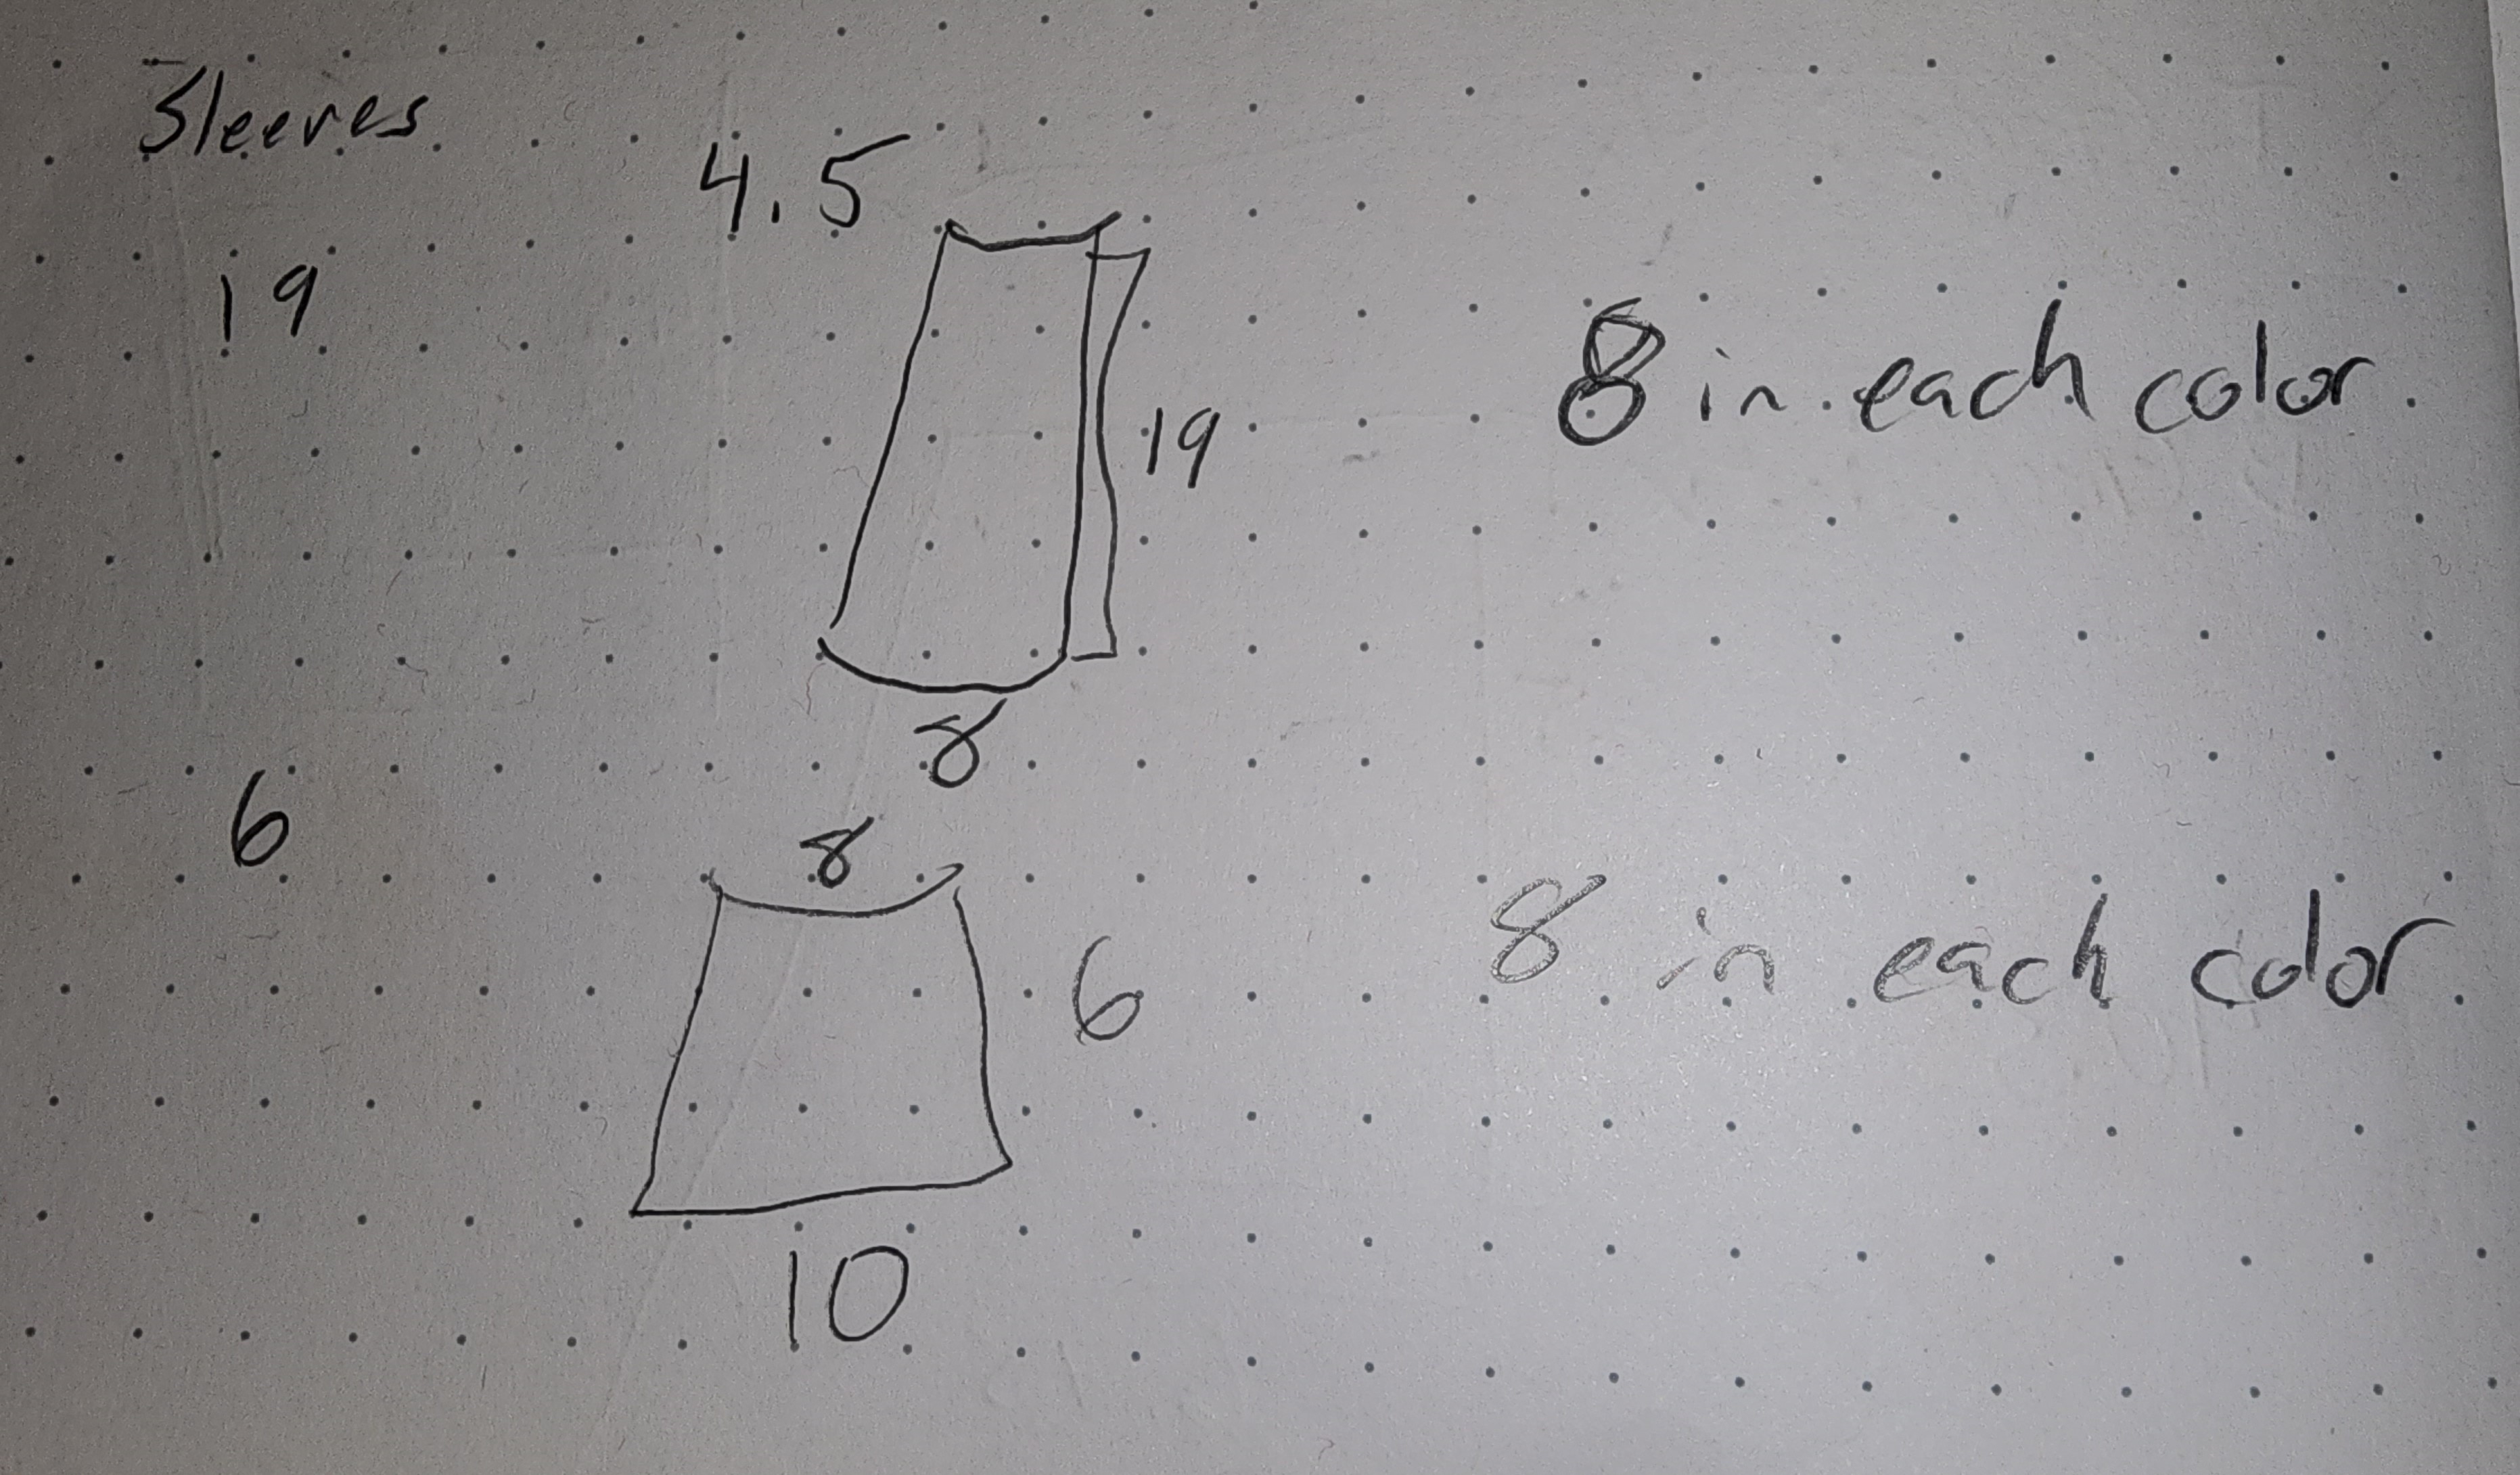 Sleeves
4.5
19
8 in each color.
19
8
6
8
6
8 in each color.
10